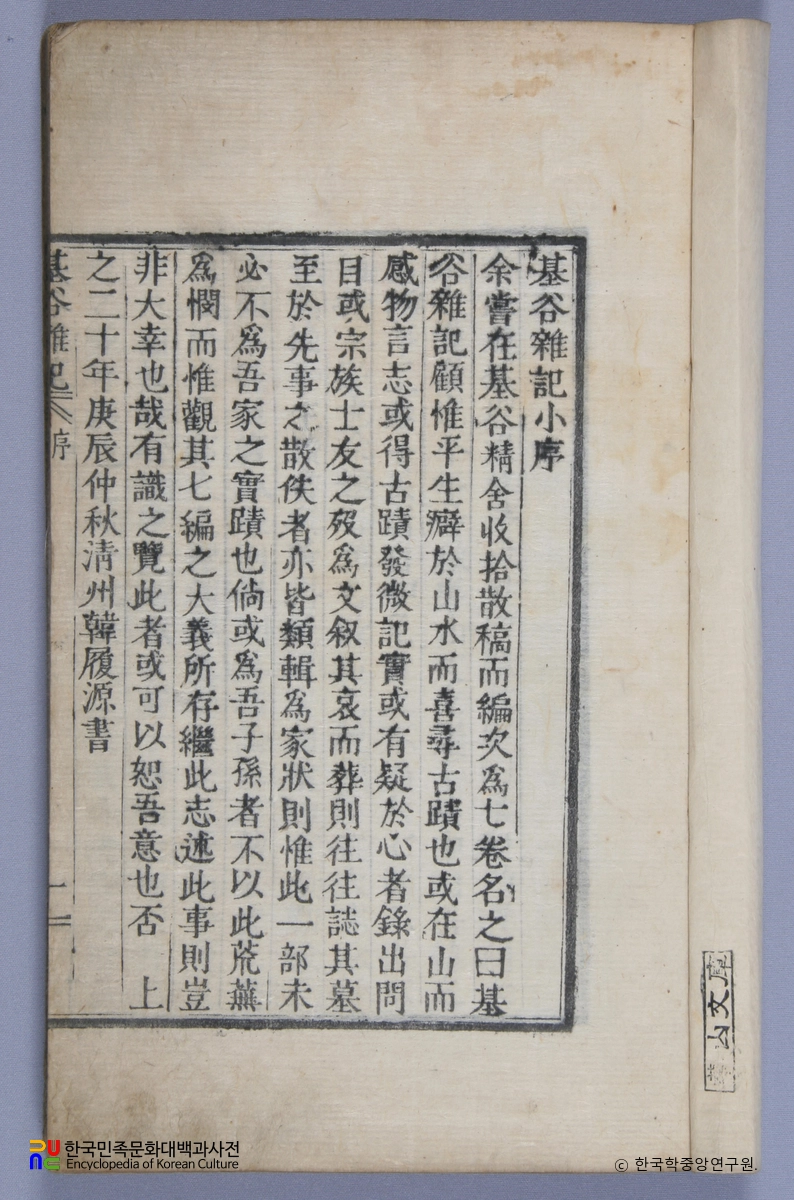 基谷雜記小序
余嘗在基谷精舍收拾散稿而編次爲七卷名之曰基
谷雜記顧惟平生癖於山水而喜尋古蹟也或在山而
感物言志或得古蹟發微記實或有疑於心者錄出問
目或宗族士友之歿爲文叙其哀而葬則往往誌其墓
至於先事之散佚者亦皆類輯爲家狀則惟此一部未
必不爲吾家之實蹟也倘或爲吾子孫者不以此荒蕪
爲憫而惟觀其七編之大義所存繼此志述此事則豈
非大幸也哉有識之覽此者或可以恕吾意也否 上
之二十年庚辰仲秋淸州韓履源書
基谷雜記 序 一
山文庫
한국민족문화대백과사전
Encyclopedia of Korean Culture
© 한국학중앙연구원.